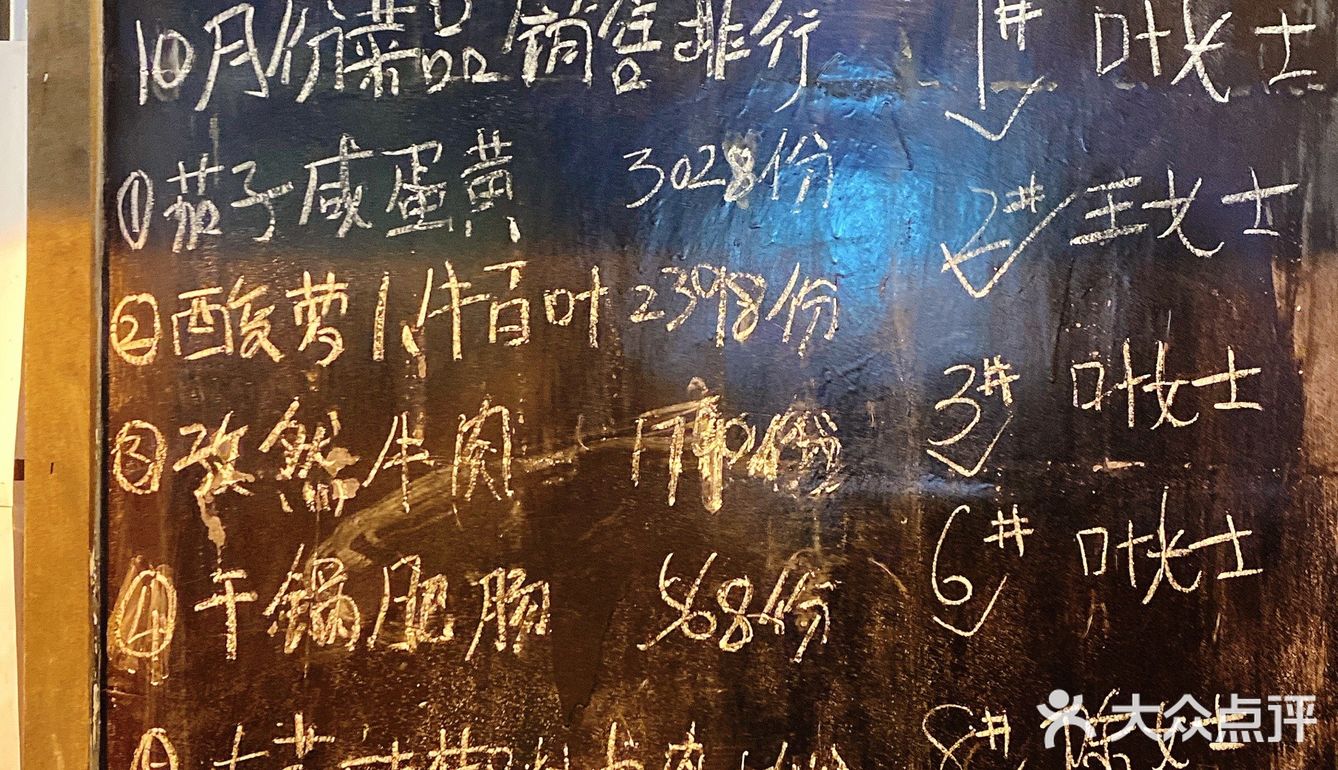 10月份菜品销售排行
①茄子咸蛋黄 3028份
②酸萝卜牛百叶 2398份
③孜然牛肉 份
④干锅肥肠 568份
1# 叶女士
2# 王女士
3# 叶女士
6# 叶女士
8# 女士
大众点评